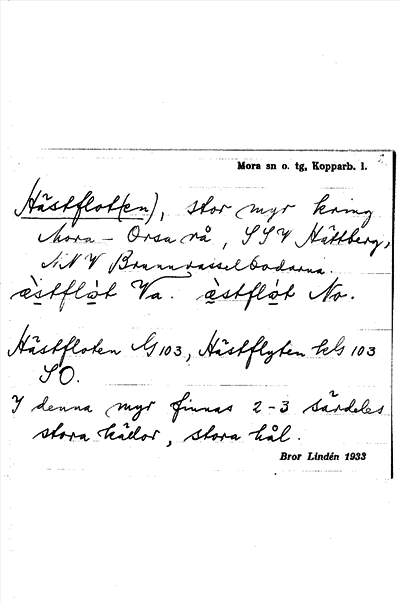 Mora sn o. tg, Kopparb. l.
Hästflot(en), stor myr kring
Mora - Orsa rå, SSV Hättberg,
NNV Brunnvasselbodarna.
æ̀stflɷ̀t Va. æ̀stflɷ̀t No.
Hästfloten G 103, Hästflyten kG 103
SO.
I denna myr finnas 2-3 särdeles
stora källor, stora hål.
Bror Lindén 1933